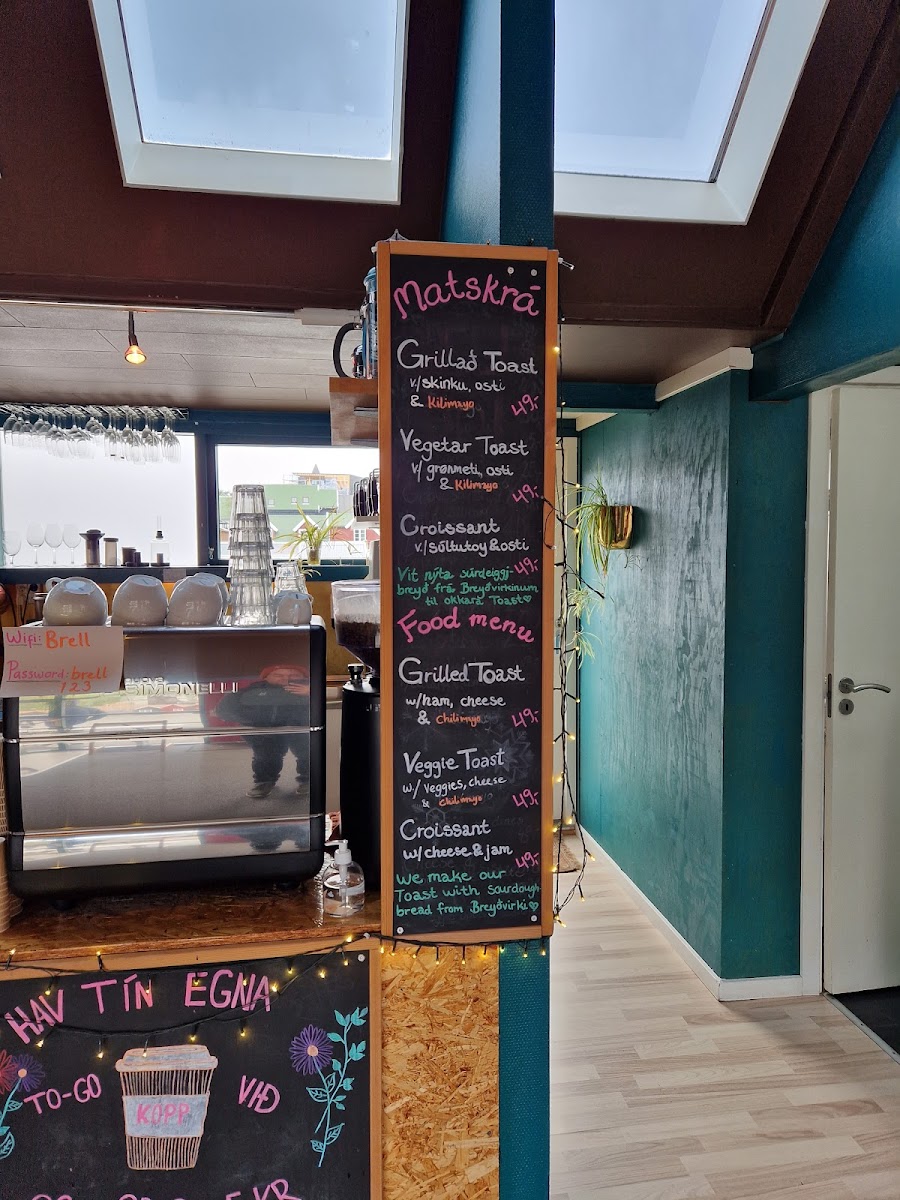 Matskrá
Grillað Toast
v/skinku, osti
& Kilimayo
49,-
Vegetar Toast
v/ grønmeti, osti
& Kilimayo
49,-
Croissant
v/súltutoy & osti
49,-
Vit nýta súrdeiggj-
breyð frá Breyðvirkinum
til okkara Toast♡
Food menu
Grilled Toast
w/ham, cheese
& Chilimayo
49,-
Veggie Toast
w/ Veggies, cheese
& Chilimayo
49,-
Croissant
w/ cheese & jam
49,-
We make our
Toast with sourdough
bread from Breyðvirki♡
Wifi: Brell
Password: brell
123
SIMONELLI
HAV TÍN EGNA
TO-GO
KOPP
VIÐ
KR